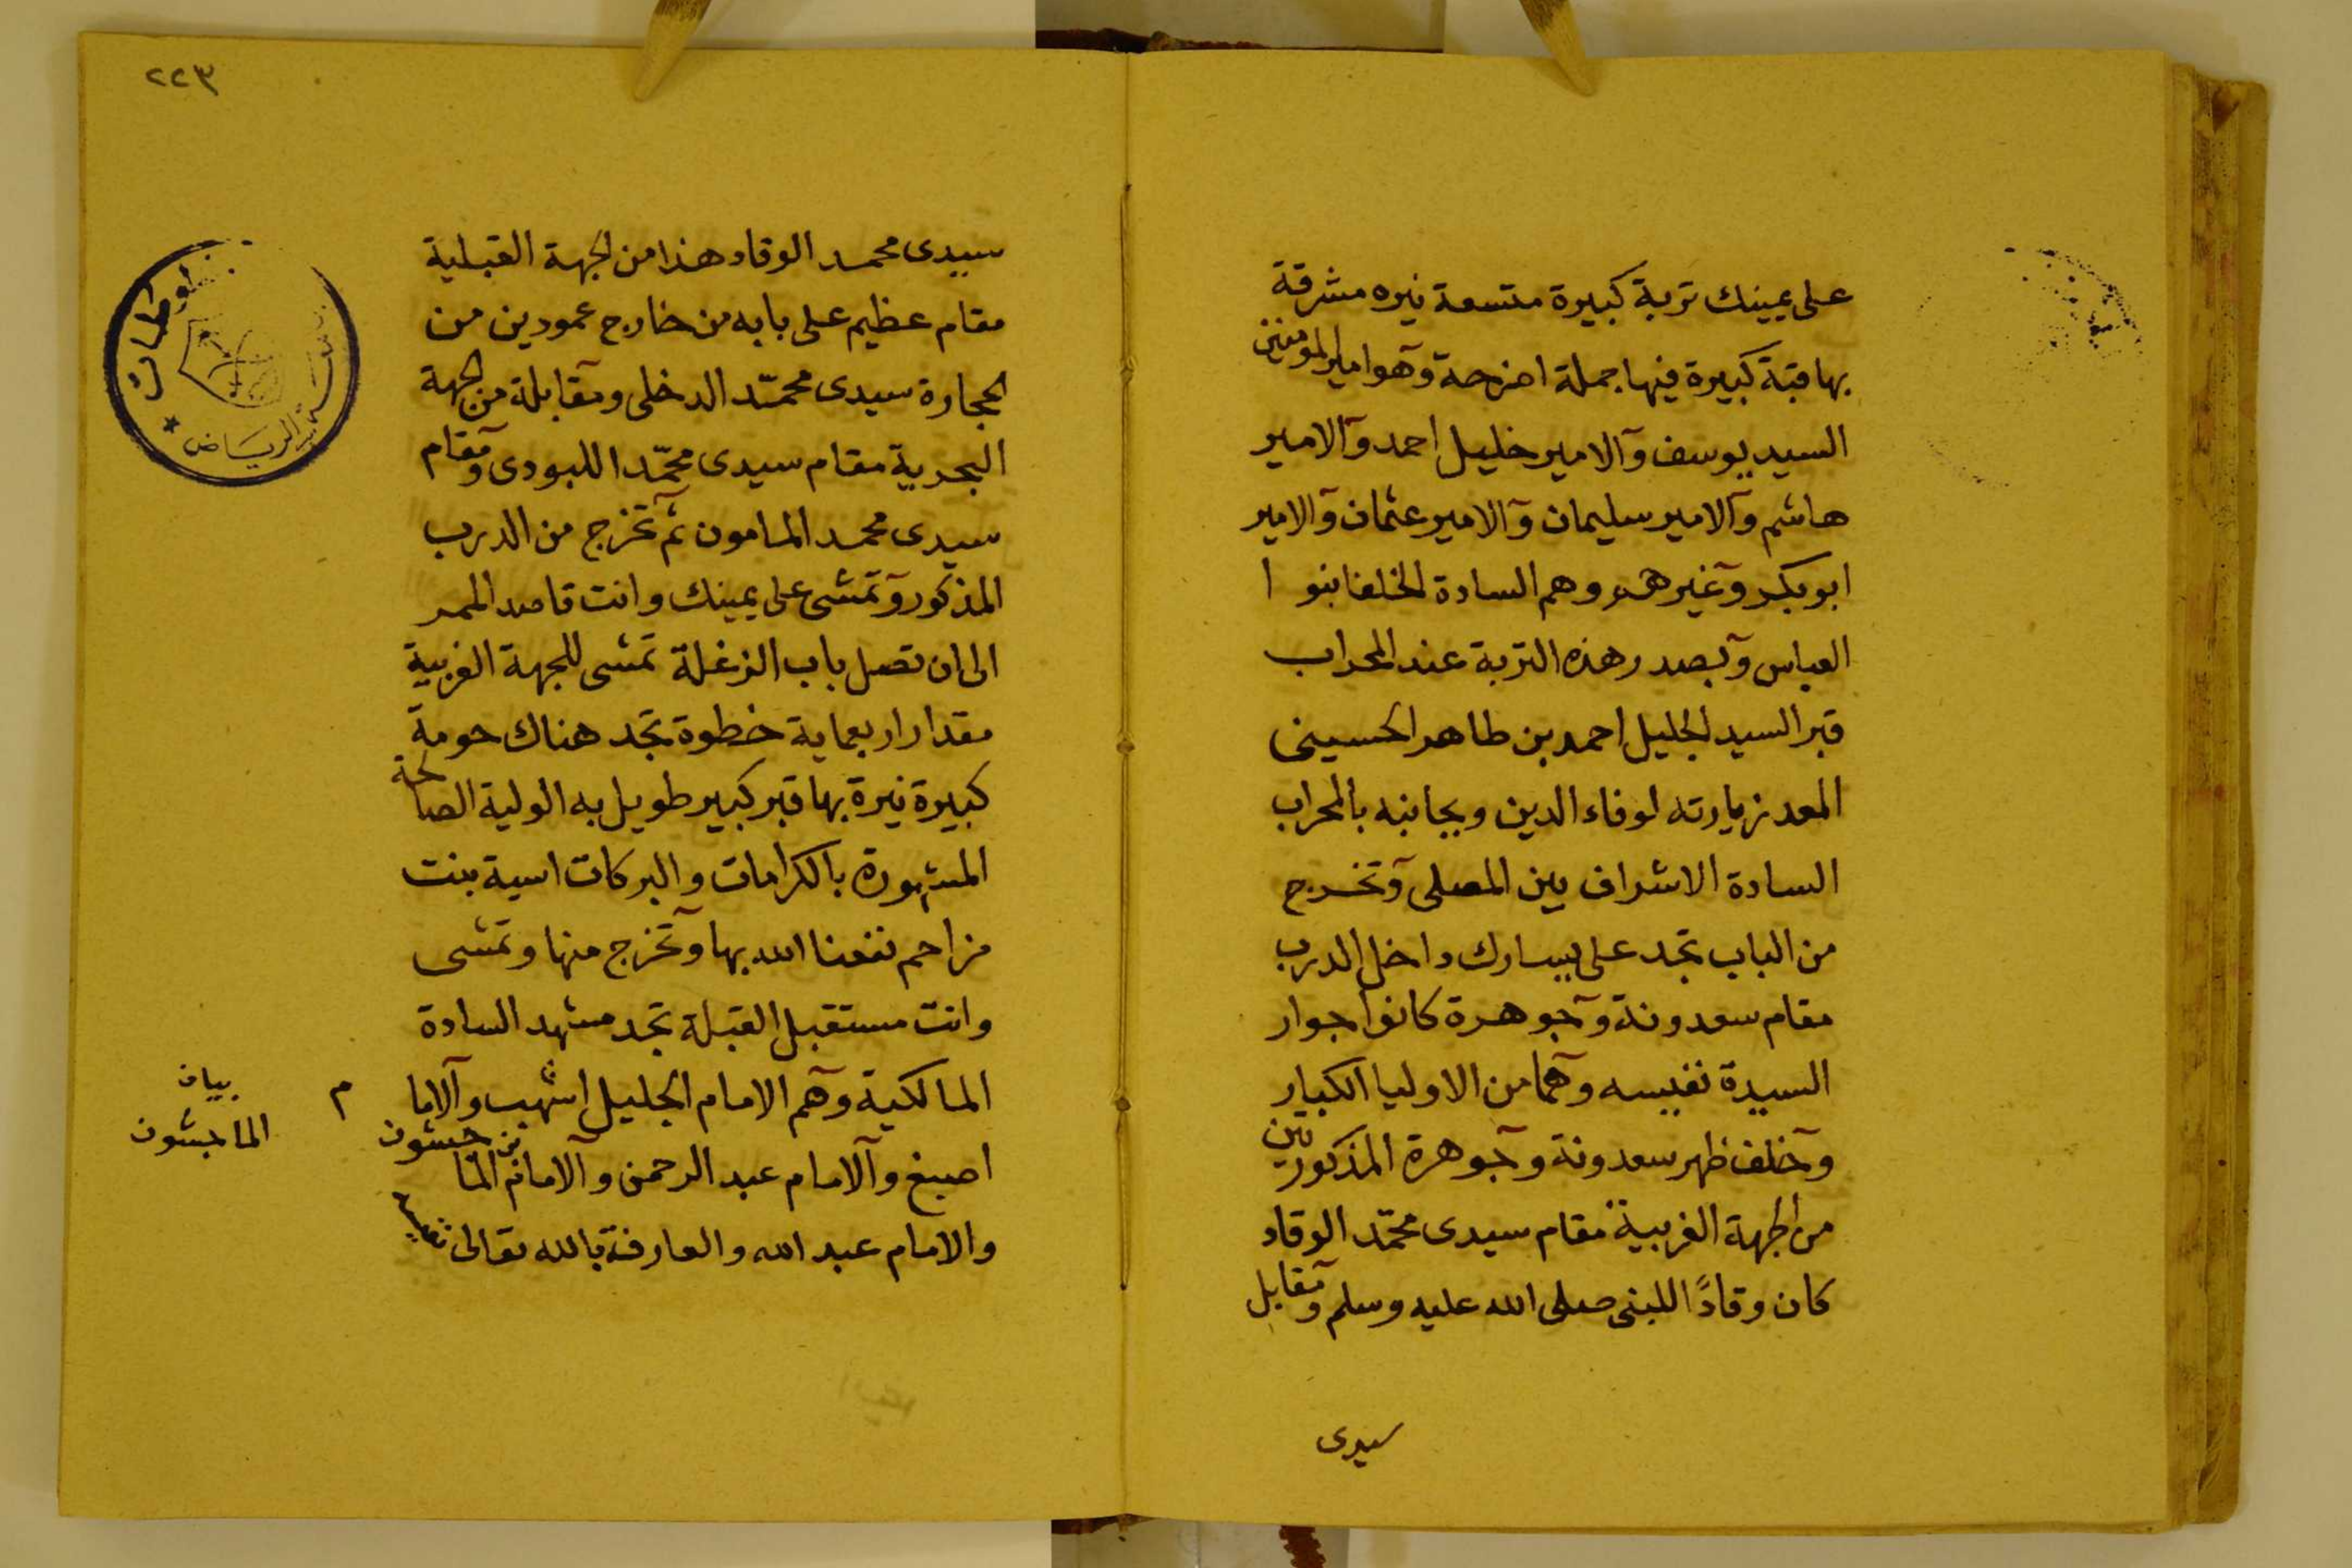 على يمينك تربة كبيرة متسعة نيره مشرقة
بها قبة كبيرة فيها جملة اضرحة وهو امير المومنين
السيد يوسف والامير خليل احمد والامير
هاشم والامير سليمان والامير عثمان والامير
ابو بكر وغيرهم وهم السادة الخلفا بنوا
العباس وبصدر هذه التربة عند المحراب
قبر السيد الجليل احمد بن طاهر الحسينى
المعد زيارته لوفاء الدين وبجانبه بالمحراب
السادة الاشراف بين المصلى وتخرج
من الباب تجد على يسارك داخل الدرب
مقام سعدونة وجوهرة كانوا جوار
السيدة نفيسه وهما من الاوليا الكبار
وخلف ظهر سعدونة وجوهرة المذكورتين
من الجهة الغربية مقام سيدى محمد الوقاد
كان وقادً اللبنى صلى الله عليه وسلم ومقابل
سيدى
٢٢٣
سيدى محمد الوقاد هذا من الجهة القبلية
مقام عظيم على بابه من خارج عمودين من
الحجارة سيدى محمّد الدخلى ومقابلة من الجهة
البحرية مقام سيدى محمّد اللبودى ومقام
سيدى محمد المامون ثم تخرج من الدرب
المذكور وتمشى على يمينك وانت قاصد الممر
الى ان تصل باب الزغلة تمشى للجهة الغربية
مقدار اربعماية خطوة تجد هناك حومة
كبيرة نيرة بها قبر كبير طويل به الولية الصالحة
المشهورة بالكرامات والبركات اسية بنت
مزاحم نفعنا الله بها وتخرج منها وتمشى
وانت مستقبل القبلة تجد مشهد السادة
المالكية وهم الامام الجليل اشهب والاما م
اصبغ والامام عبد الرحمن والامام بن الماجشون
والامام عبد الله والعارفة بالله تعالى
بيان
الماجشون
الرياض